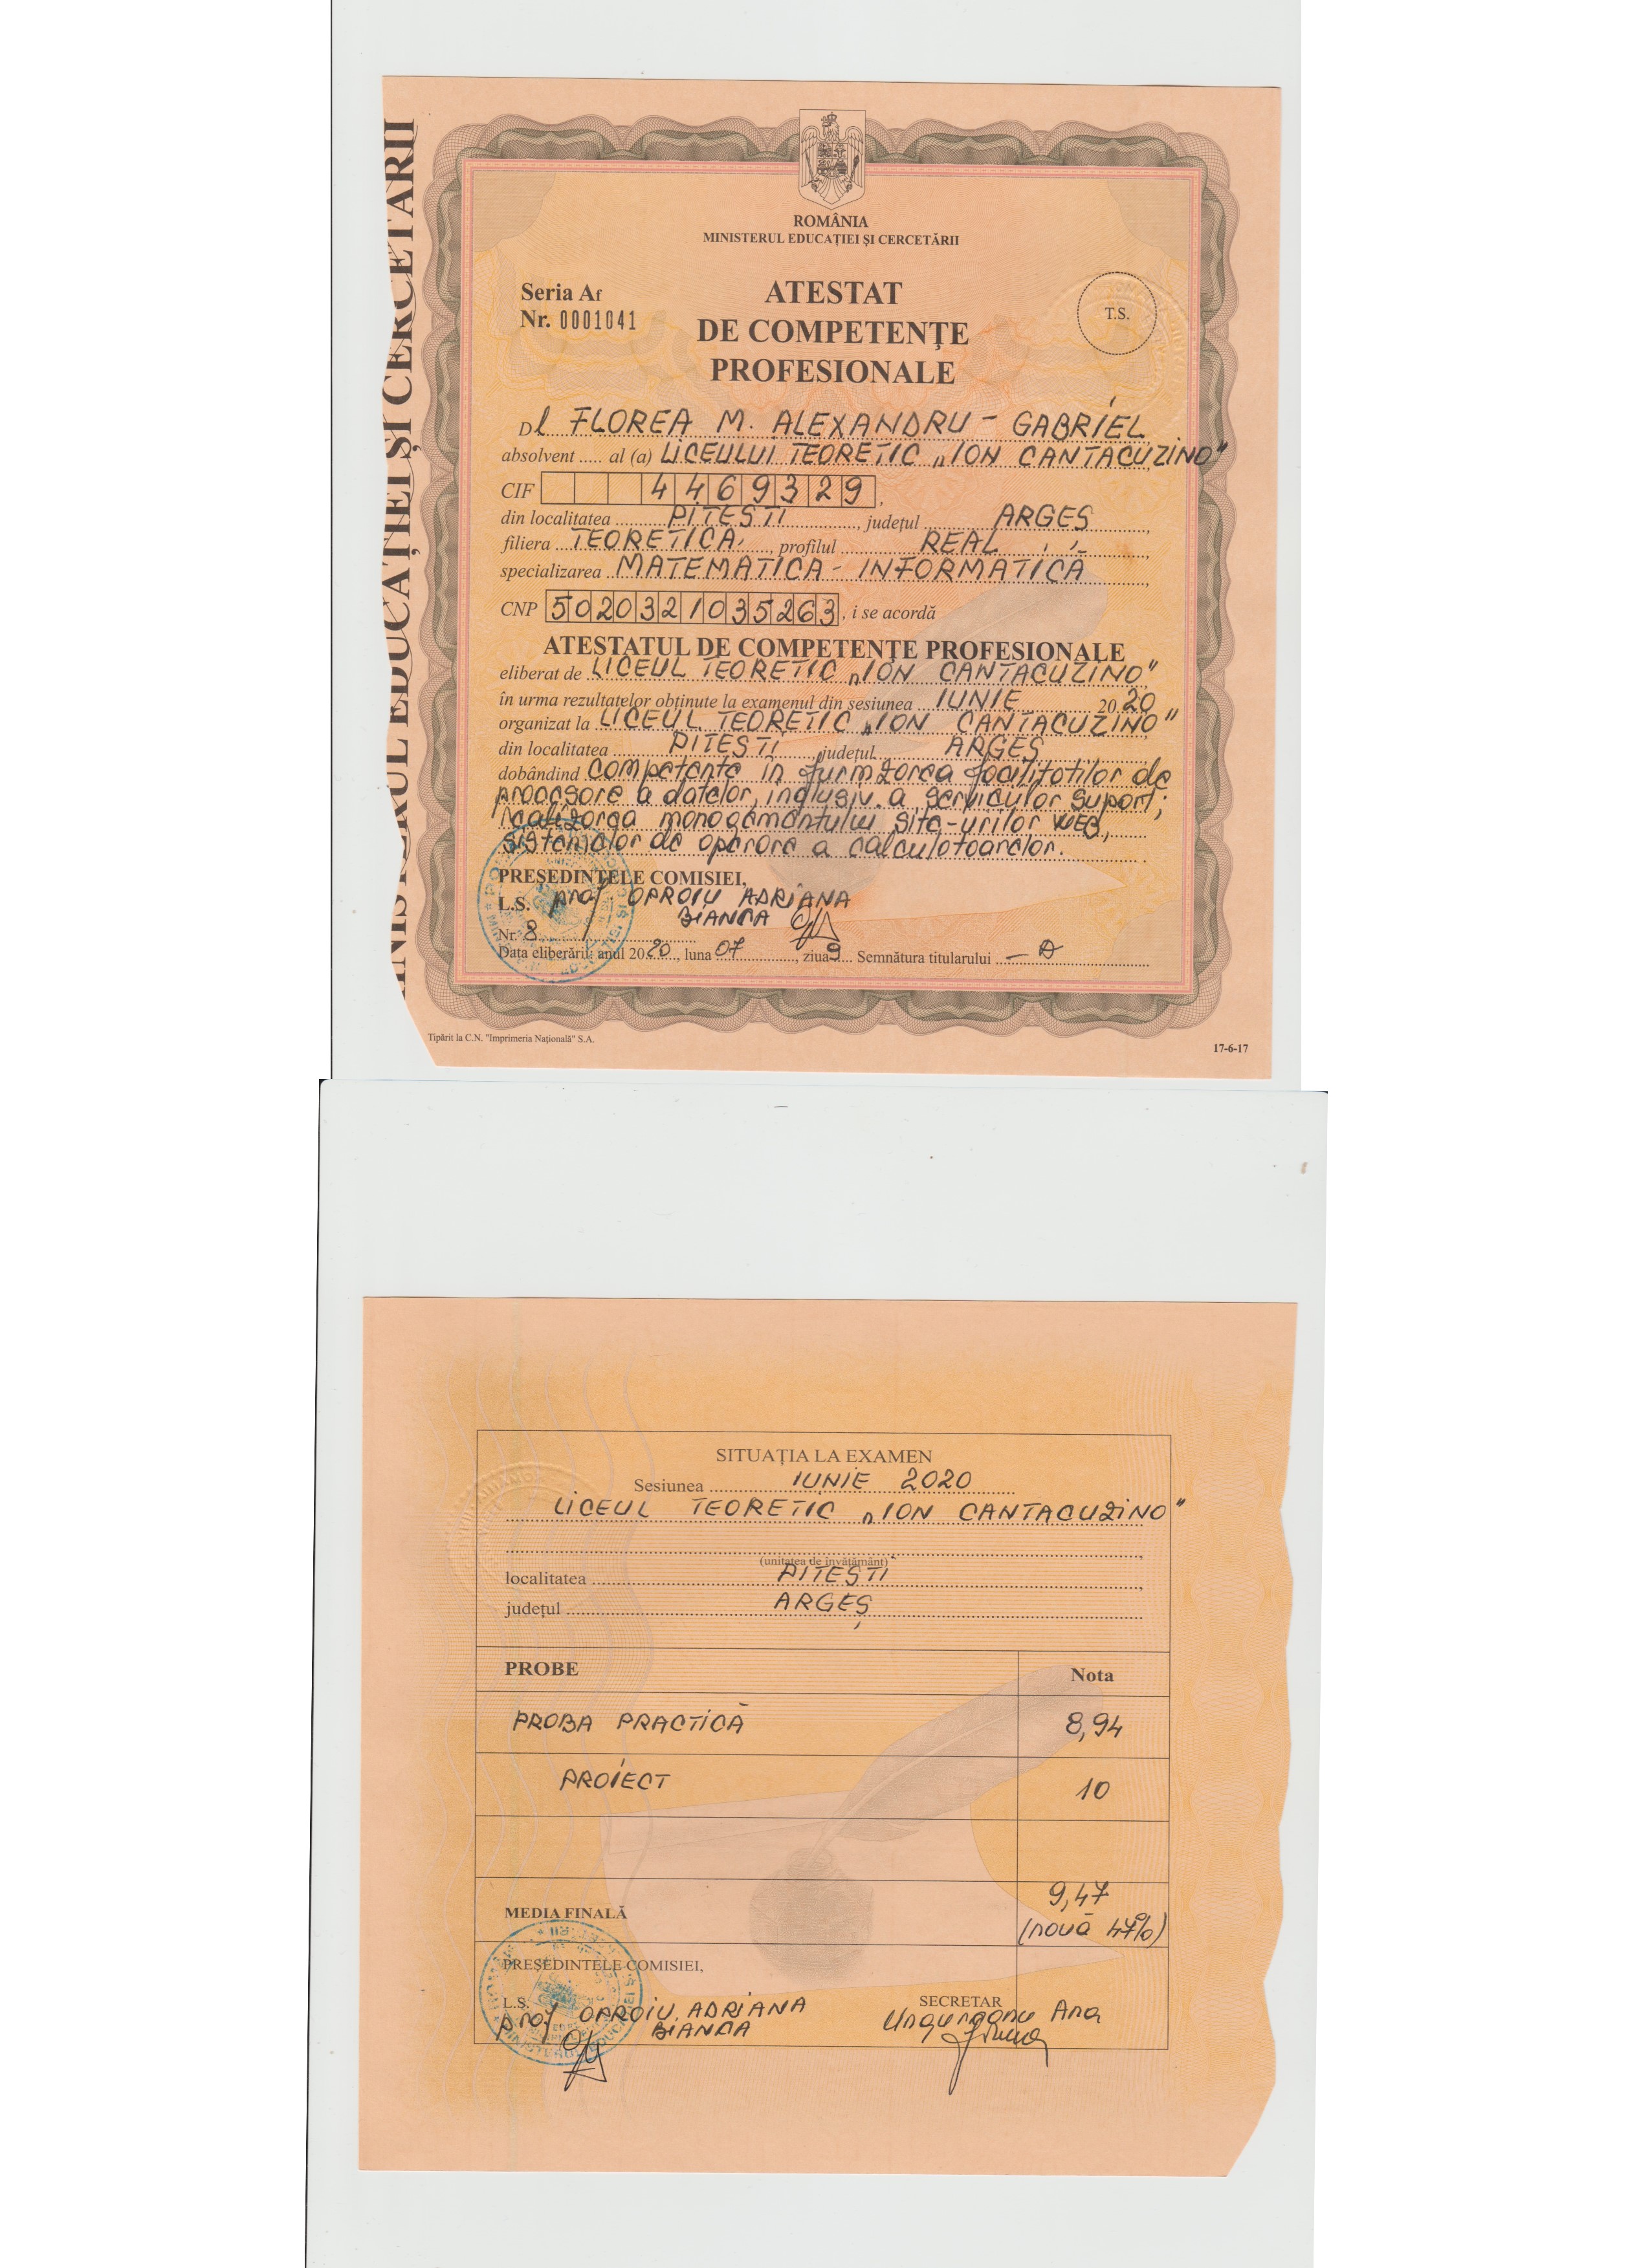 MINISTERUL EDUCAȚIEI ȘI CERCETĂRII
ROMÂNIA
MINISTERUL EDUCAȚIEI ȘI CERCETĂRII
Seria Af
Nr. 0001041
ATESTAT
DE COMPETENŢE
PROFESIONALE
T.S.
Dl FLOREA M. ALEXANDRU - GABRIEL
absolvent ..... al (a) LICEULUI TEORETIC „ION CANTACUZINO"
CIF 4469329,
din localitatea PITEȘTI, județul ARGEȘ,
filiera TEORETICĂ, profilul REAL,
specializarea MATEMATICĂ - INFORMATICĂ,
CNP 5020321035263, i se acordă
ATESTATUL DE COMPETENŢE PROFESIONALE
eliberat de LICEUL TEORETIC „ION CANTACUZINO"
în urma rezultatelor obținute la examenul din sesiunea IUNIE 2020
organizat la LICEUL TEORETIC „ION CANTACUZINO"
din localitatea PITEȘTI județul ARGEȘ
dobândind competențe în furnizarea facilităților de
procesare a datelor, inclusiv a serviciilor suport;
realizarea managementului site-urilor WEB,
sistemelor de operare a calculatoarelor.
PREȘEDINTELE COMISIEI,
L.S. prof OPROIU ADRIANA
BIANCA
Nr. 8
Data eliberării: anul 2020, luna 07, ziua 9 Semnătura titularului
Tipărit la C.N. "Imprimeria Națională" S.A.
17-6-17
SITUAȚIA LA EXAMEN
Sesiunea IUNIE 2020
LICEUL TEORETIC „ION CANTACUZINO"
(unitatea de învățământ)
localitatea PITEȘTI
județul ARGEȘ
PROBE Nota
PROBA PRACTICĂ 8,94
PROIECT 10
MEDIA FINALĂ 9,47
(nouă 47%)
PREȘEDINTELE COMISIEI,
L.S. SECRETAR
prof OPROIU ADRIANA Ungureanu Ana
BIANCA